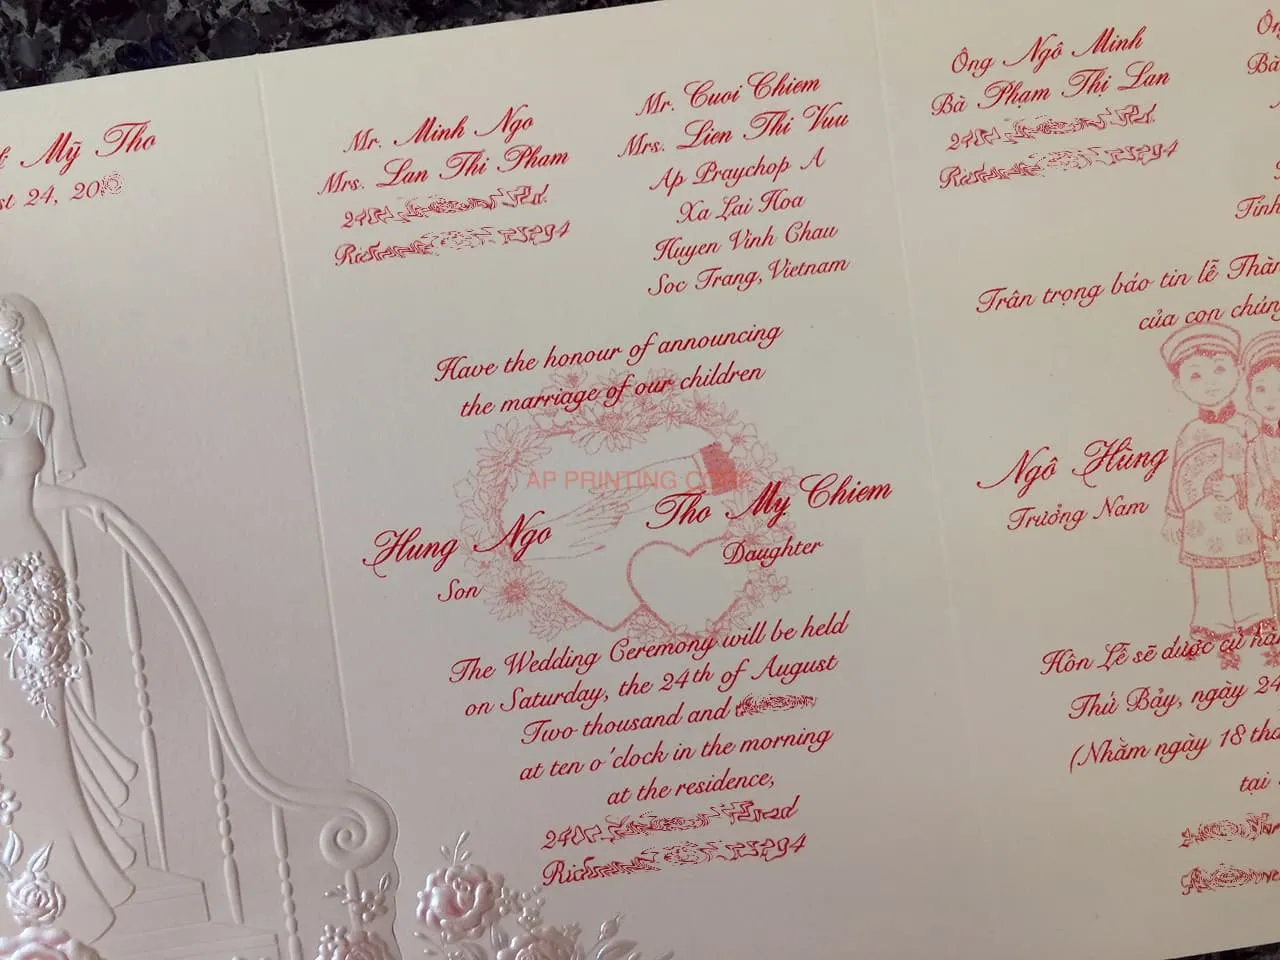 Mỹ Tho
24, 20
Mr. Minh Ngo
Mrs. Lan Thi Pham
Mr. Cuoi Chiem
Mrs. Lien Thi Vuu
Ap Praychop A
Xa Lai Hoa
Huyen Vinh Chau
Soc Trang, Vietnam
Have the honour of announcing
the marriage of our children
AP PRINTING CORP
Hung Ngo
Son
Tho My Chiem
Daughter
The Wedding Ceremony will be held
on Saturday, the 24th of August
Two thousand and
at ten o'clock in the morning
at the residence,
Ông Ngô Minh
Bà Phạm Thị Lan
Bà
Tỉnh
Trân trọng báo tin lễ Thàn
của con chúng
Ngô Hùng
Trưởng Nam
Hôn Lễ sẽ được cử hà
Thứ Bảy, ngày 24
(Nhằm ngày 18 thá
tại